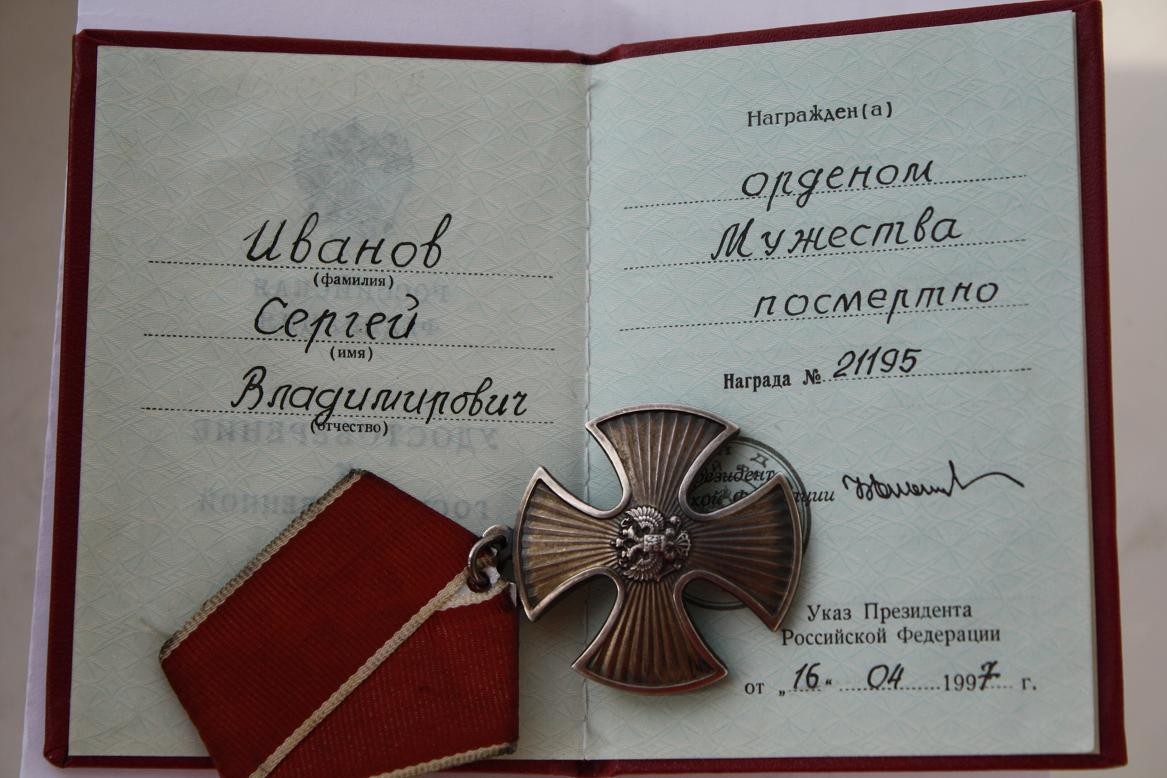 Иванов
(фамилия)
Сергей
(имя)
Владимирович
(отчество)
Награжден(а)
орденом
Мужества
посмертно
Награда № 21195
Указ Президента
Российской Федерации
от „16“ 04 1997 г.